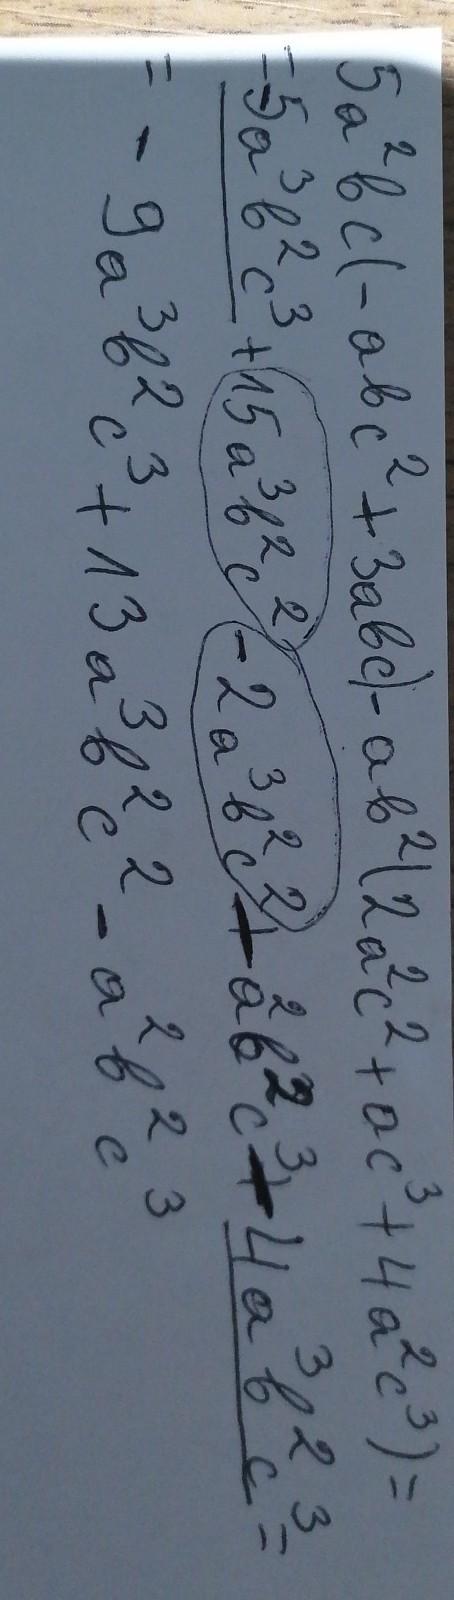 5a²bc(-abc²+3abc)-ab²(2a²c²+ac³+4a²c³)=
=-5a³b²c³+15a³b²c²-2a³b²c²-a²b²c³-4a³b²c³=
=-9a³b²c³+13a³b²c²-a²b²c³